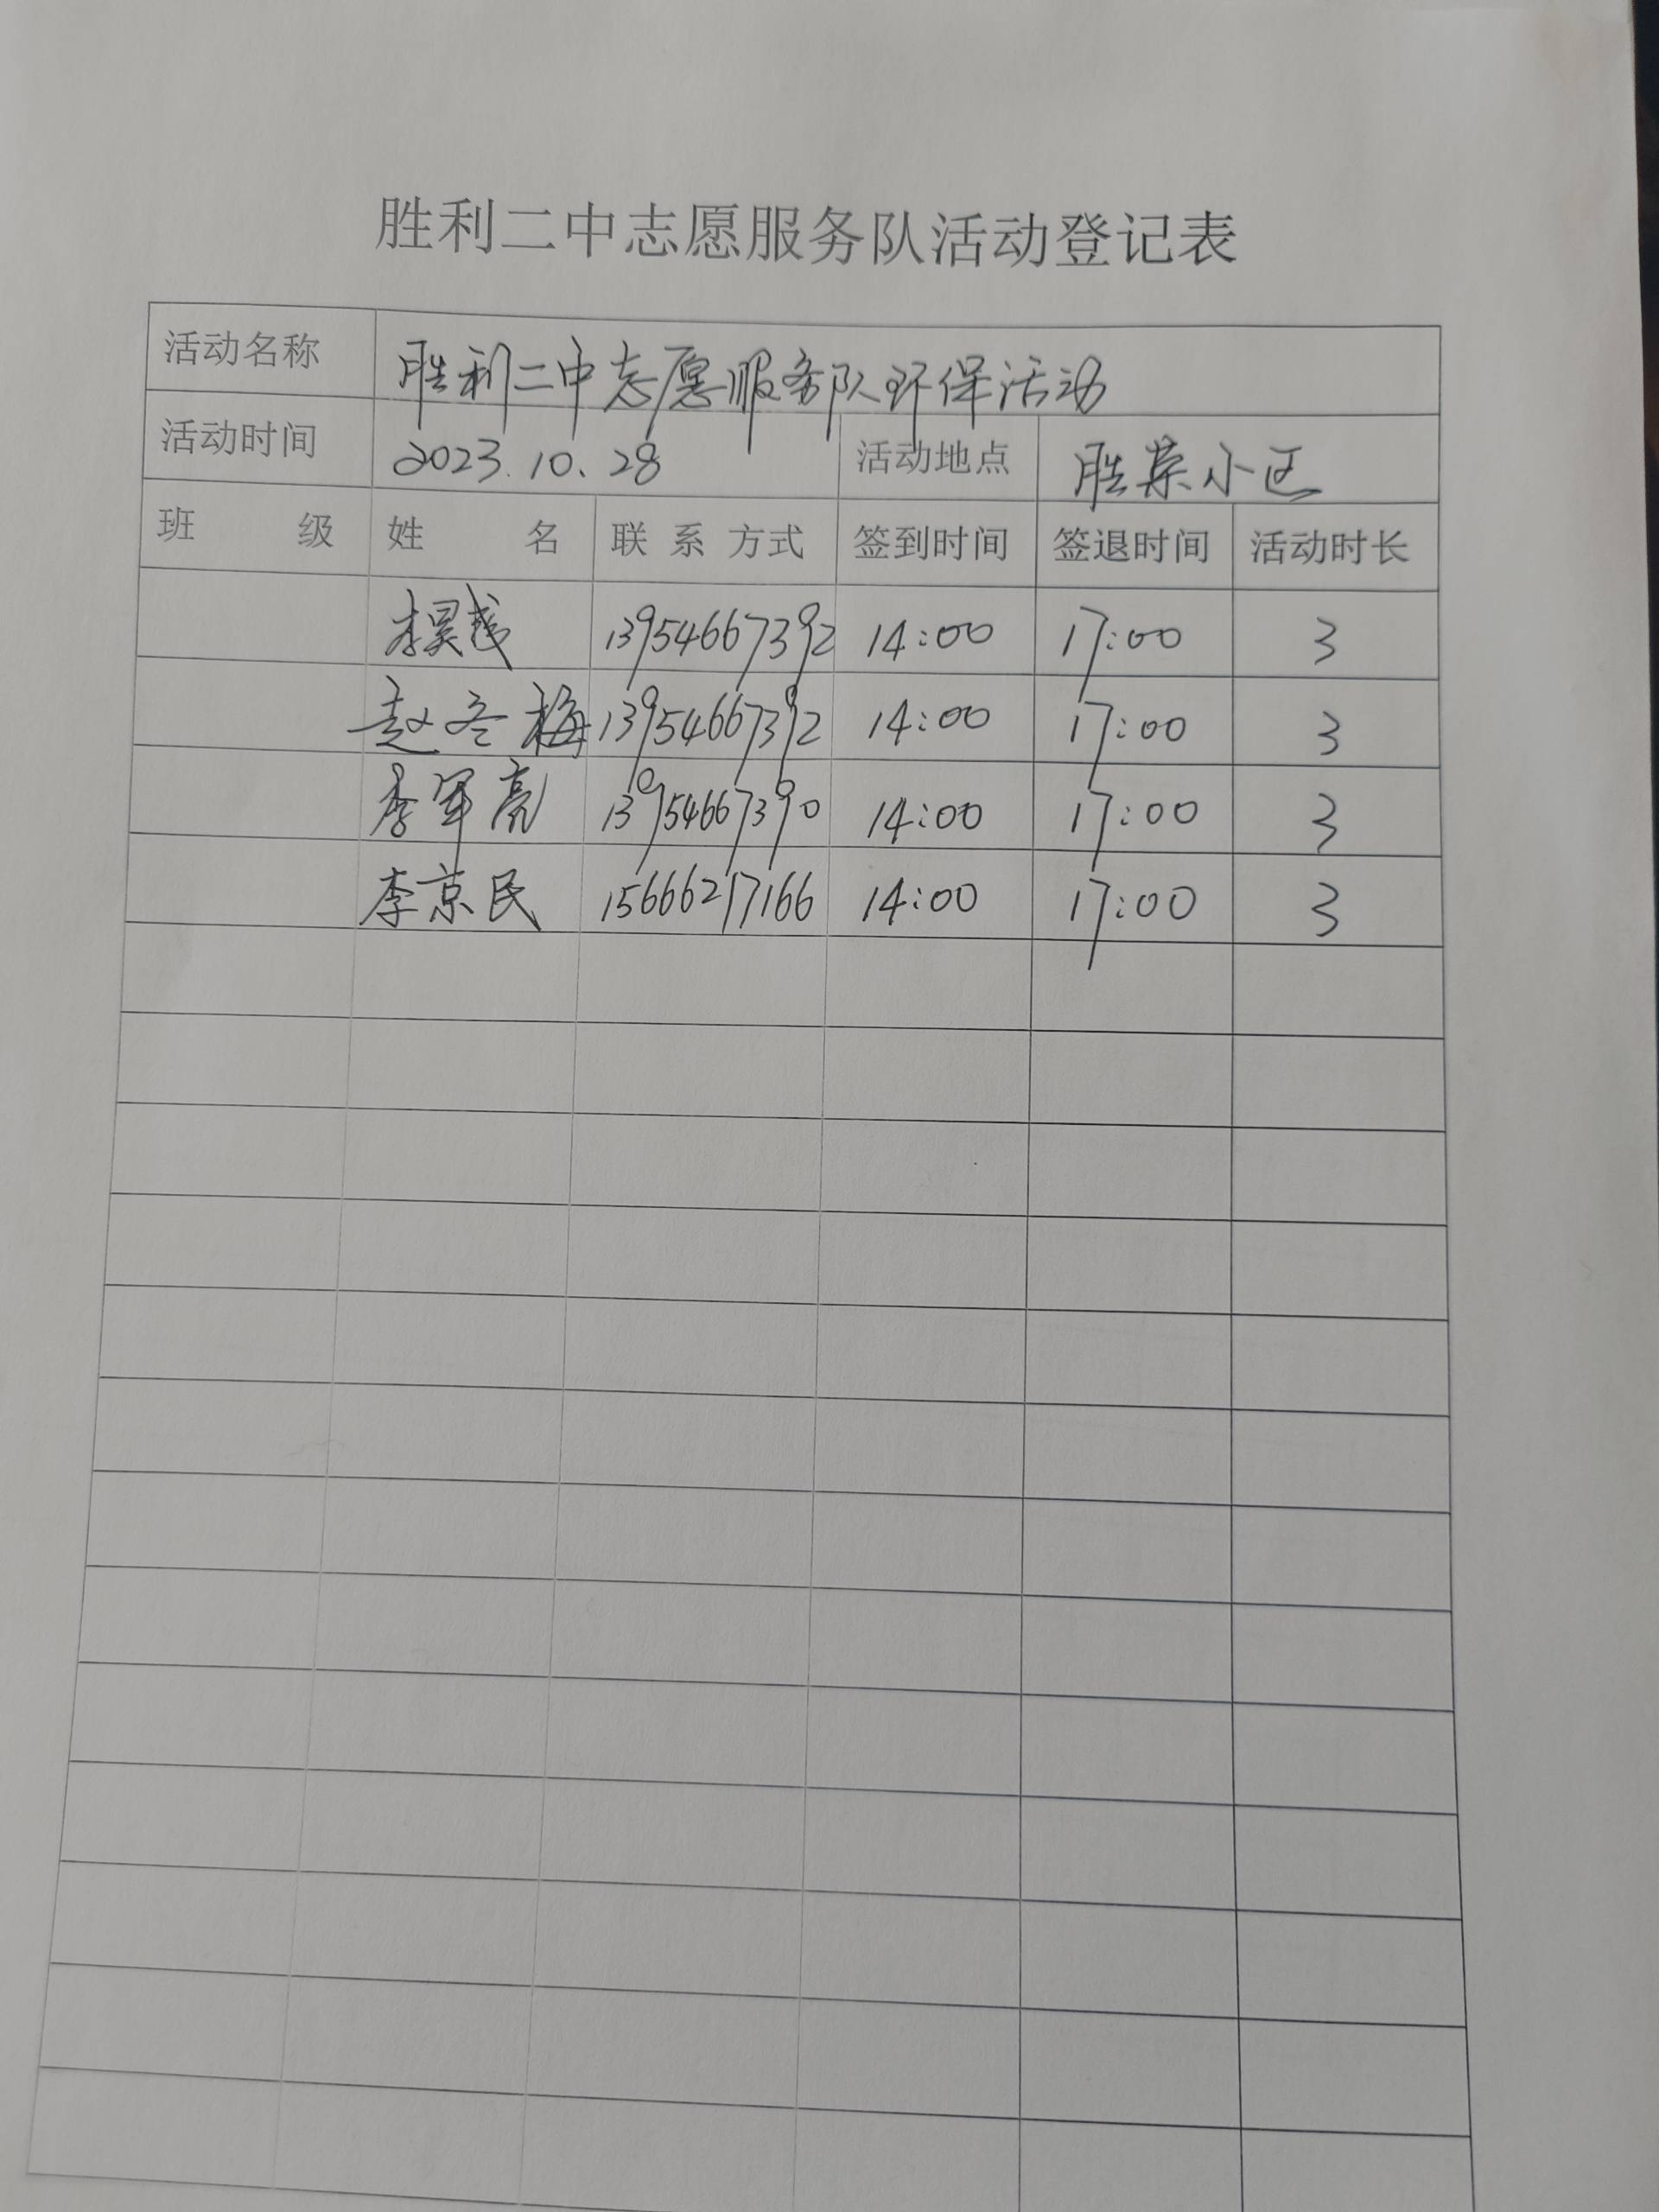 胜利二中志愿服务队活动登记表
活动名称 胜利二中志愿服务队环保活动
活动时间 2023.10.28 活动地点 胜采小区
班 级 姓 名 联系方式 签到时间 签退时间 活动时长
李昊越 13954667392 14:00 17:00 3
赵冬梅 13954667392 14:00 17:00 3
李军亮 13954667390 14:00 17:00 3
李京民 15666217166 14:00 17:00 3